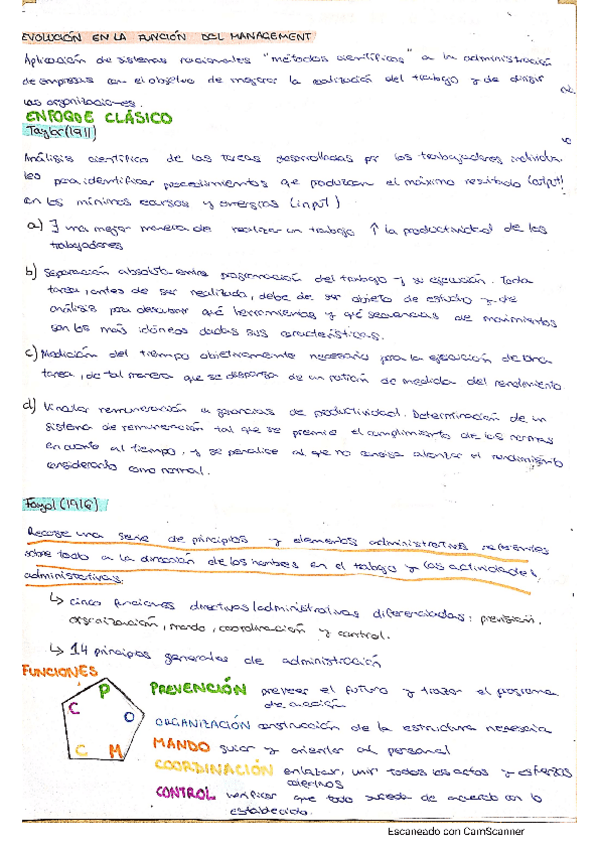 EVOLUCIÓN EN LA FUNCIÓN DEL MANAGEMENT
Aplicación de sistemas racionales "métodos científicos" a la administración
de empresas con el objetivo de mejorar la realización del trabajo y de dirigir
las organizaciones.
ENFOQUE CLÁSICO
Taylor (1911)
Análisis científico de las tareas desarrolladas por los trabajadores individua
les para identificar procedimientos que produzcan el máximo resultado (output)
en los mínimos recursos y energías (input)
a) ∃ una mejor manera de realizar un trabajo ↑ la productividad de los
trabajadores
b) Separación absoluta entre programación del trabajo y su ejecución. Toda
tarea, antes de ser realizada, debe de ser objeto de estudio y de
análisis para descubrir qué herramientas y qué secuencias de movimientos
son los más idóneos dadas sus características.
c) Medición del tiempo objetivamente necesario para la ejecución de una
tarea, de tal manera que se disponga de un patrón de medida del rendimiento
d) Vincular remuneración a ganancias de productividad. Determinación de un
sistema de remuneración tal que se premie el cumplimiento de las normas
en cuanto al tiempo, y se penalice al que no consiga alcanzar el rendimiento
considerado como normal.
Fayol (1916)
Recoge una serie de principios y elementos administrativos referentes
sobre todo a la dirección de los hombres en el trabajo y las actividades
administrativas.
↳ cinco funciones directivas/administrativas diferenciadas: previsión,
organización, mando, coordinación y control.
↳ 14 principios generales de administración
FUNCIONES
P
C
O
C
M
PREVENCIÓN preveer el futuro y trazar el programa
de acción
ORGANIZACIÓN construcción de la estructura necesaria
MANDO guiar y orientar al personal
COORDINACIÓN enlazar, unir todos los actos y esfuerzos
CONTROL verificar que todo suceda de acuerdo con lo
establecido.
Escaneado con CamScanner